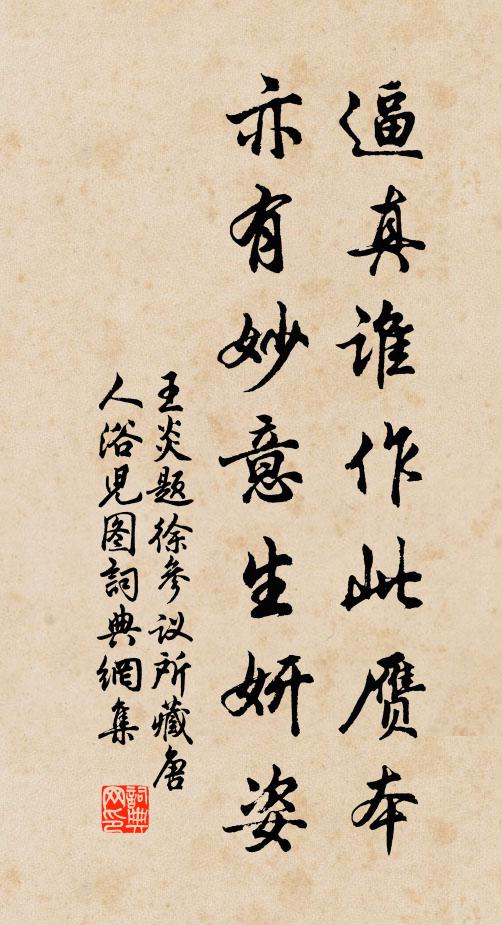 逼真谁作此赝本
亦有妙意生妍姿
王炎题徐参议所藏唐
人浴儿图詞典網集
詞典网印